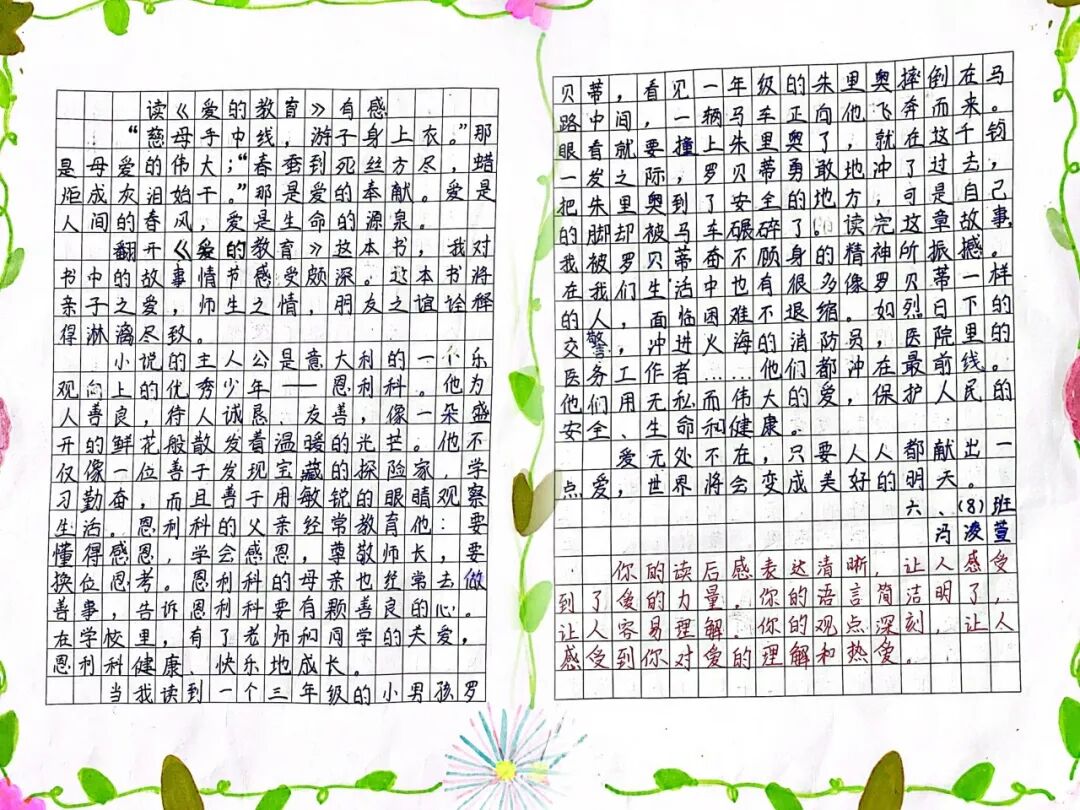 读《爱的教育》有感
“慈母手中线，游子身上衣。”那
是母爱的伟大；“春蚕到死丝方尽，蜡
炬成灰泪始干。”那是爱的奉献。爱是
人间的春风，爱是生命的源泉。
翻开《爱的教育》这本书，我对
书中的故事情节感受颇深。这本书将
亲子之爱，师生之情，朋友之谊诠释
得淋漓尽致。
小说的主人公是意大利的一个乐
观向上的优秀少年——恩利科。他为
人善良，待人诚恳、友善，像一朵盛
开的鲜花般散发着温暖的光芒。他不
仅像一位善于发现宝藏的探险家，学
习勤奋，而且善于用敏锐的眼睛观察
生活。恩利科的父亲经常教育他：要
懂得感恩，学会感恩，尊敬师长，要
换位思考。恩利科的母亲也经常去做
善事，告诉恩利科要有颗善良的心。
在学校里，有了老师和同学的关爱，
恩利科健康、快乐地成长。
当我读到一个三年级的小男孩罗
贝蒂，看见一年级的朱里奥摔倒在马
路中间，一辆马车正向他飞奔而来。
眼看就要撞上朱里奥了，就在这千钧
一发之际，罗贝蒂勇敢地冲了过去，
把朱里奥到了安全的地方，可是自己
的脚却被马车碾碎了。读完这章故事，
我被罗贝蒂奋不顾身的精神所振撼。
在我们生活中也有很多像罗贝蒂一样
的人，面临困难不退缩。如烈日下的
交警，冲进火海的消防员，医院里的
医务工作者……他们都冲在最前线。
他们用无私而伟大的爱，保护人民的
安全、生命和健康。
爱无处不在，只要人人都献出一
点爱，世界将会变成美好的明天。
六、(8)班
冯凌萱
你的读后感表达清晰，让人感受
到了爱的力量。你的语言简洁明了，
让人容易理解。你的观点深刻，让人
感受到你对爱的理解和热爱。